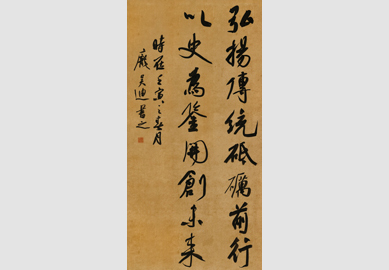 弘揚傳统砥礪前行
以史為鉴開創未来
時在壬寅之春月
吴迪書之